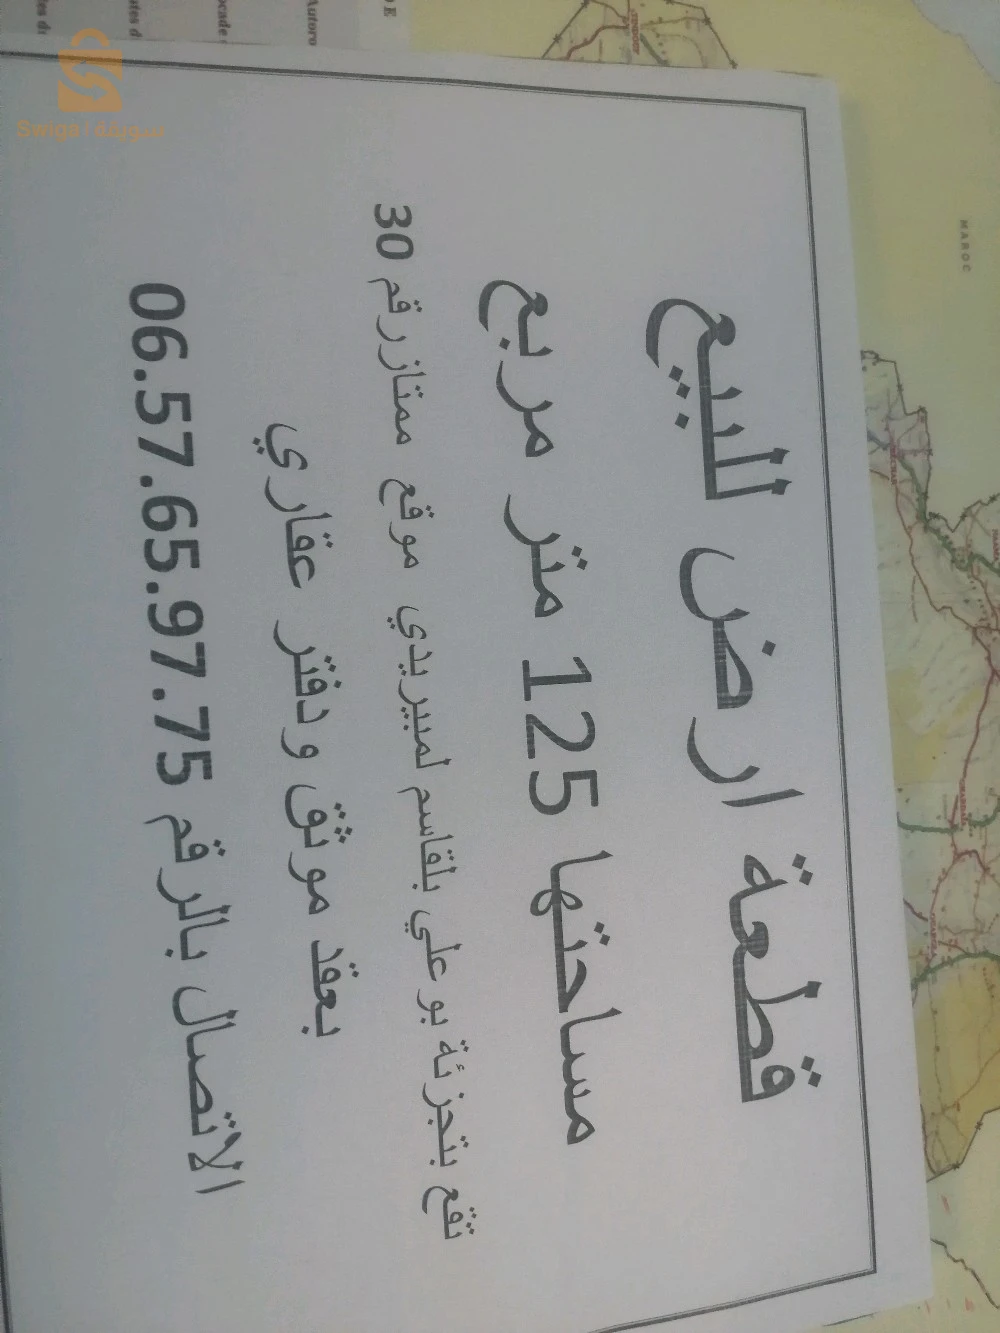 قطعة ارض للبيع
مساحتها 125 متر مربع
تقع بتجزئة بو علي بلقاسم لمبيريدي موقع ممتاز رقم 30
بعقد موثق ودفتر عقاري
الاتصال بالرقم 06.57.65.97.75
Swiqa سويقة
MAROC
Autoro